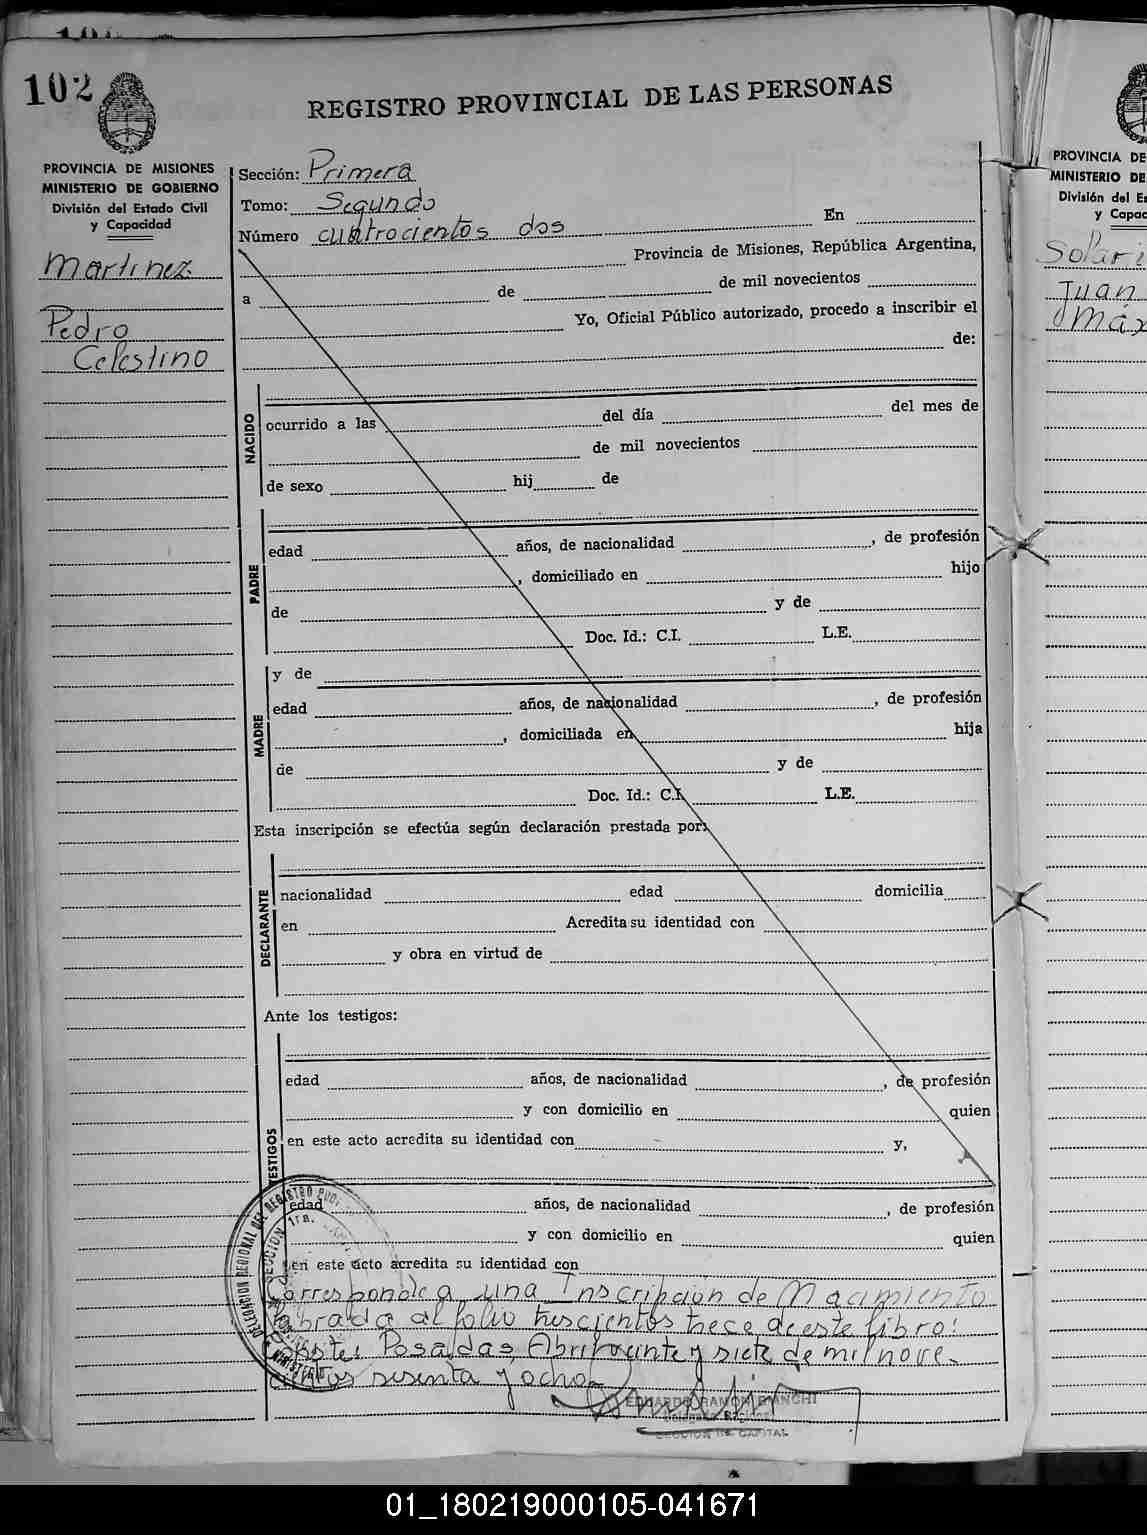 102
REGISTRO PROVINCIAL DE LAS PERSONAS
PROVINCIA DE MISIONES
MINISTERIO DE GOBIERNO
División del Estado Civil
y Capacidad
Martinez
Pedro
Celestino
Sección: Primera
Tomo: Segundo
Número cuatrocientos dos En
Provincia de Misiones, República Argentina,
a de de mil novecientos
Yo, Oficial Público autorizado, procedo a inscribir el
de:
NACIDO
ocurrido a las del día del mes de
de mil novecientos
de sexo hij de
PADRE
edad años, de nacionalidad , de profesión
, domiciliado en hijo
de y de
Doc. Id.: C.I. L.E.
MADRE
y de
edad años, de nacionalidad , de profesión
, domiciliada en hija
de y de
Doc. Id.: C.I. L.E.
Esta inscripción se efectúa según declaración prestada por:
DECLARANTE
nacionalidad edad domicilia
en Acredita su identidad con
y obra en virtud de
Ante los testigos:
TESTIGOS
edad años, de nacionalidad , de profesión
y con domicilio en quien
en este acto acredita su identidad con y,
edad años, de nacionalidad , de profesión
y con domicilio en quien
en este acto acredita su identidad con
Corresponde a una Inscripción de Nacimiento
labrada al folio trescientos trece de este libro:
Conste: Posadas, Abril veinte y siete de mil nove-
cientos sesenta y ocho
EDUARDO RAMON BIANCHI
Delegado Regional
SECCION DE CAPITAL
DELEGACION REGIONAL DEL REGISTRO
SECCION 1ra.
PROVINCIA DE
MINISTERIO DE
División del Es
y Capac
Solari
Juan
Máx
01_180219000105-041671